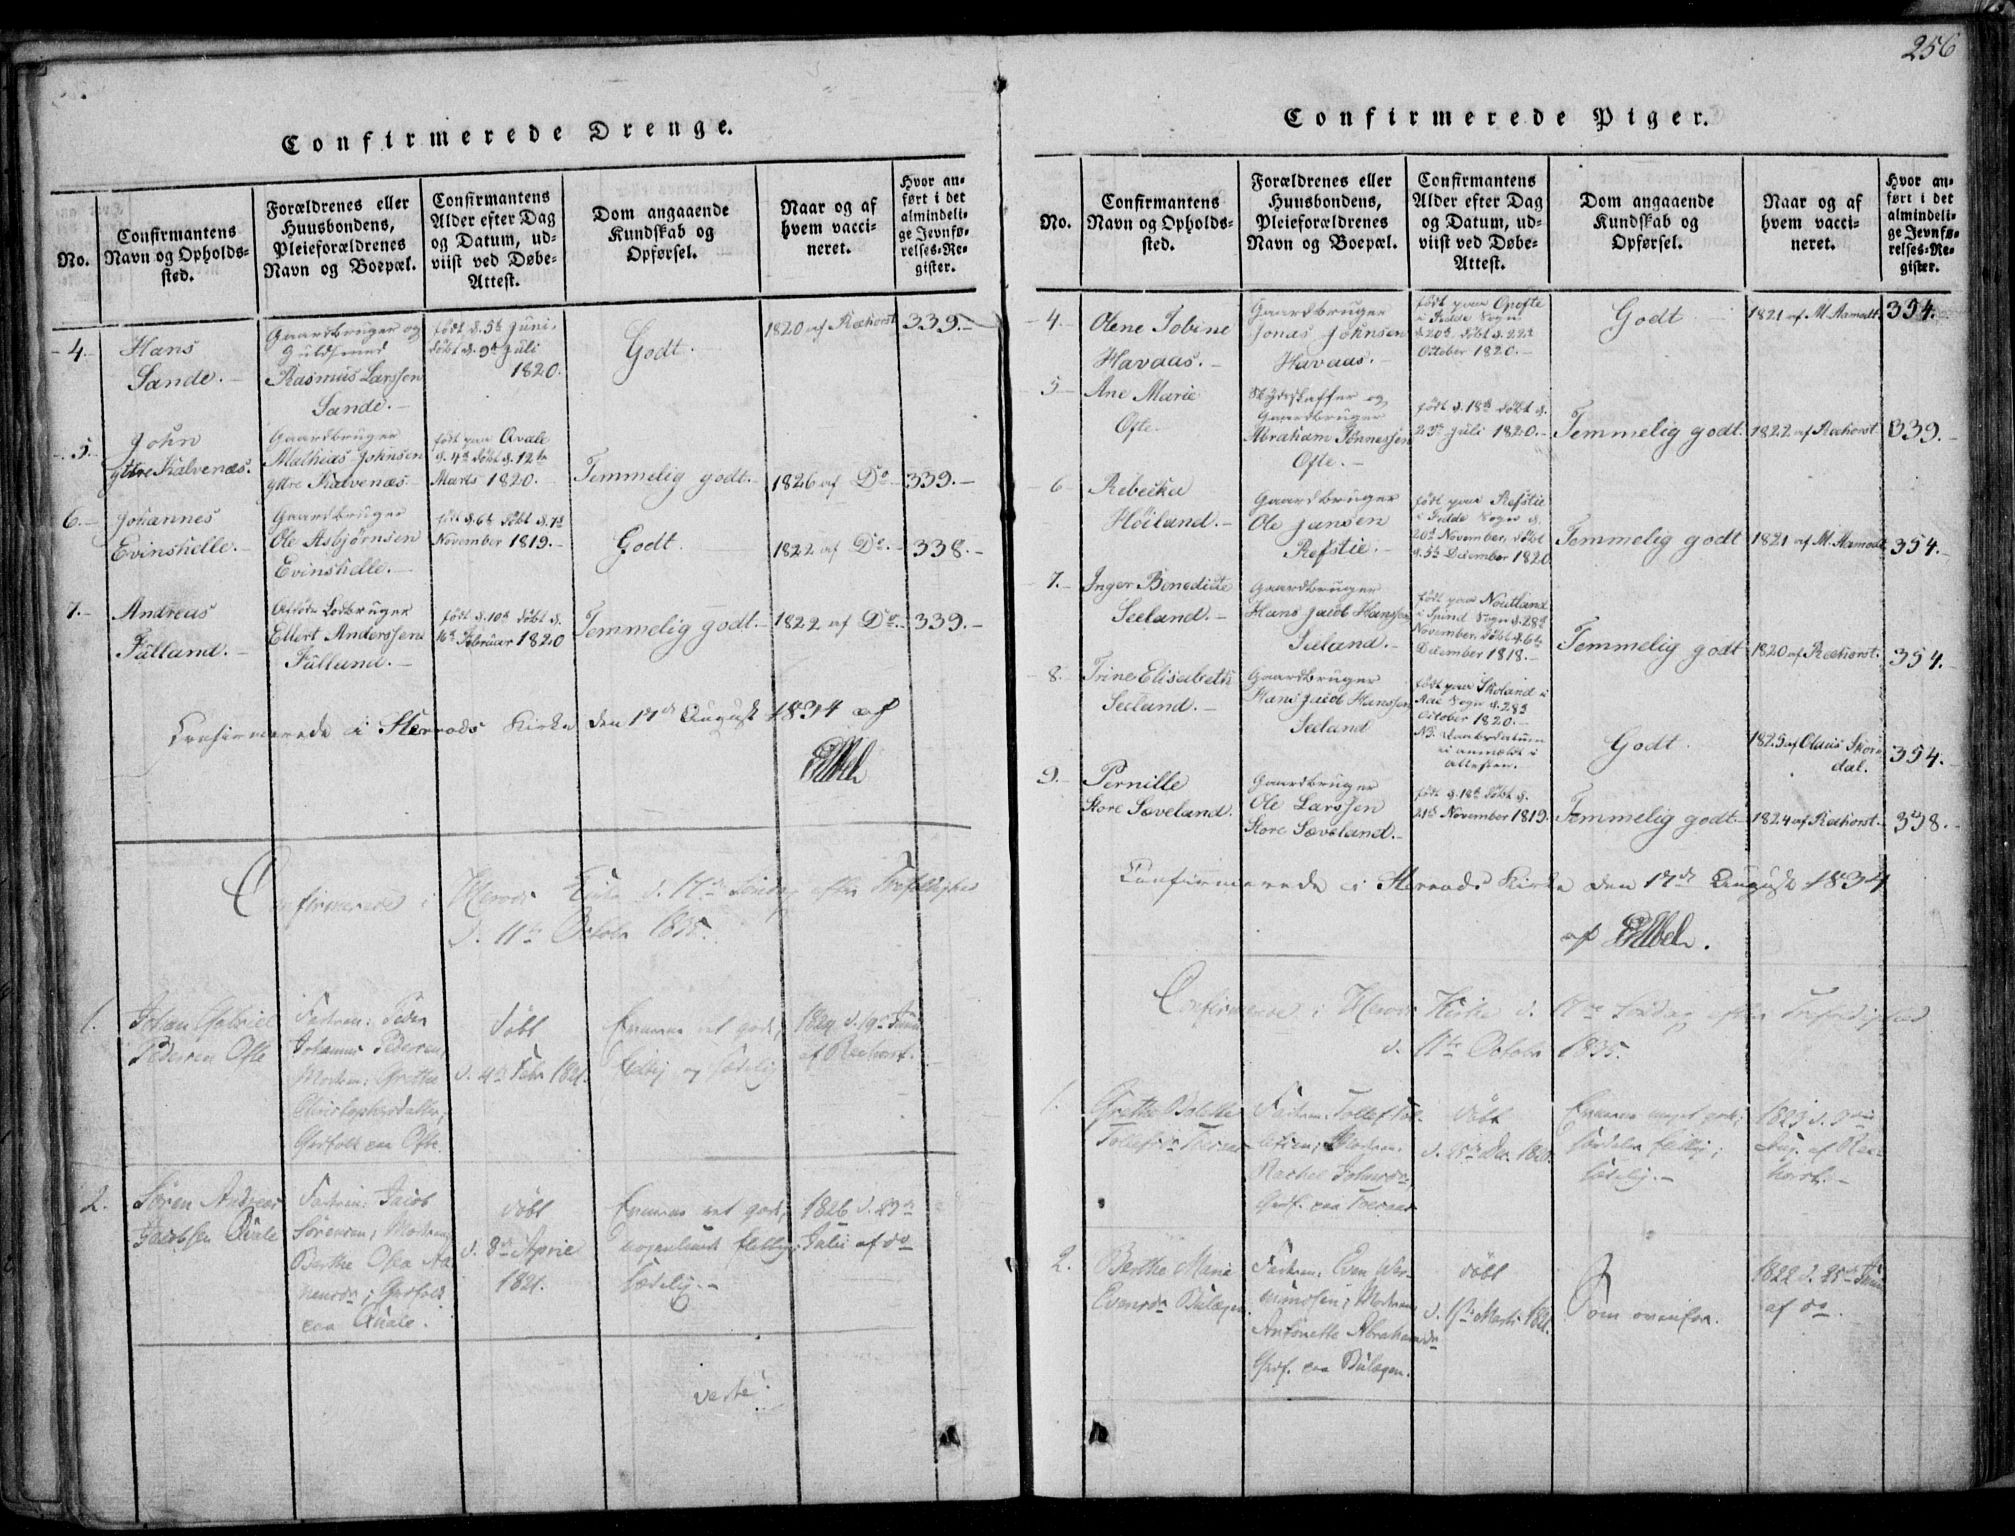 256
Confirmerede Drenge.
No.
Confirmantens
Navn og Opholds-
sted.
Forældrenes eller
Huusbondens,
Pleieforældrenes
Navn og Boepæl.
Confirmantens
Alder efter Dag
og Datum, ud-
viist ved Døbe-
Attest.
Dom angaaende
Kundskab og
Opførsel.
Naar og af
hvem vacci-
neret.
Hvor an-
ført i det
almindeli-
ge Jevnfø-
relses-Re-
gister.
4.
Hans
Sande.
Gaardbruger og
Guldsmed
Rasmus Larssen
Sande.
født d. 5te Juni,
døbt d. 9de Juli
1820.
Godt.
1820 af Reehorst
339.
5.
John
Yttre Kalvenæs.
Gaardbruger
Mathias Johnsen
Yttre Kalvenæs
født paa Qvale
d. 4de døbt d. 12te
Marts 1820.
Temmelig godt.
1826 af Do
339.
6.
Johannes
Evinshelle.
Gaardbruger
Ole Asbjørnsen
Evinshelle.
født d. 6te døbt d. 7de
November 1819.
Godt.
1822 af Do.
338.
7.
Andreas
Fuland.
Ellert Anderssen
Fuland.
født d. 10de døbt d.
16de Februar 1820
Temmelig godt.
1822 af Do.
339.
Confirmerede i Herrods Kirke den 17de August 1834 af
Abel
Confirmerede i Herrods Kirke d. 17de Søndag efter Trefoldighed
d. 11te Octobr 1835.
1.
Johan Gabriel
Pedersen Ofte
Fadren: Peder
Johannes Pedersen,
Modren: Grethe
Christophersdatter,
Gaardfolk paa Ofte.
døbt
d. 4de Febr 1821.
flittig og sædelig
af Reehorst.
2.
Søren Andreas
Jacobsen Qvale
Fadren: Jacob
Sørensen; Modren,
Berthe Olea
paa Qvale.
døbt
d. 8de April
1821.
sædelig.
1826 d. 23de
Juli af do
verte!
Confirmerede Piger.
No.
Confirmantens
Navn og Opholds-
sted.
Forældrenes eller
Huusbondens,
Pleieforældrenes
Navn og Boepæl.
Confirmantens
Alder efter Dag
og Datum, ud-
viist ved Døbe-
Attest.
Dom angaaende
Kundskab og
Opførsel.
Naar og af
hvem vacci-
neret.
Hvor an-
ført i det
almindeli-
ge Jevnfø-
relses-Re-
gister.
4.
Olene Tobine
Havaas.
Gaardbruger
Jonas Johnsen
Havaas.
født paa Opofte
i Fedde Sogn
d. 20de døbt d. 22de
October 1820.
Godt
1821 af M. Aamodt
354.
5
Ane Marie
Ofte
Skydsskaffer og
Gaardbruger
Abraham Tønnessen
Ofte.
født d. 18de døbt d.
23de Juli 1820.
Temmelig godt.
1822 af Reehorst
339.
6
Rebecka
Høiland.
Gaardbruger
Ole Jansen
Refstie.
født paa Refstie
i Fedde Sogn d.
20de November, døbt
d. 5te December 1820
Temmelig godt
1821 af M. Aamodt
354.
7.
Inger Benedicte
Seeland.
Gaardbruger
Hans Jacob Hanssen
Seeland.
født paa Noutland
i Spind Sogn d. 28de
November, døbt d. 6te
December 1818.
Temmelig godt
1820 af Reehorst.
354.
8.
Trine Elisabeth
Seeland.
Gaardbruger
Hans Jacob Hanssen
Seeland
født paa Skoland i
Aae Sogn d. 28de
October 1820.
NB. Daabsdatum
ei anmeldt i
Attesten.
Godt.
1825 af Olaus Skor-
dal.
354.
9.
Pernille
Store Sæveland.
Gaardbruger
Ole Larssen
Store Sæveland.
født d. 18de døbt d.
21de November 1819.
Temmelig godt.
1824 af Reehorst.
338.
Confirmerede i Herrods Kirke den 17de August 1834
af Abel.
Confirmerede i Herrods Kirke d. 17de Søndag efter Trefoldighed
d. 11te Octobr 1835.
1.
Grethe
døbt
d. 25de Dec. 1820.
sædelig.
1823 d. 9de
Aug. af Ree-
horst.
2.
Berthe Marie
Evensdr Bulægen
Fadren: Even
Modren
Antonette Abrahamsdr
paa Bulægen.
døbt
d. 1ste Marts 1821.
Som ovenfor.
1822 d. 25de Juni
af do.